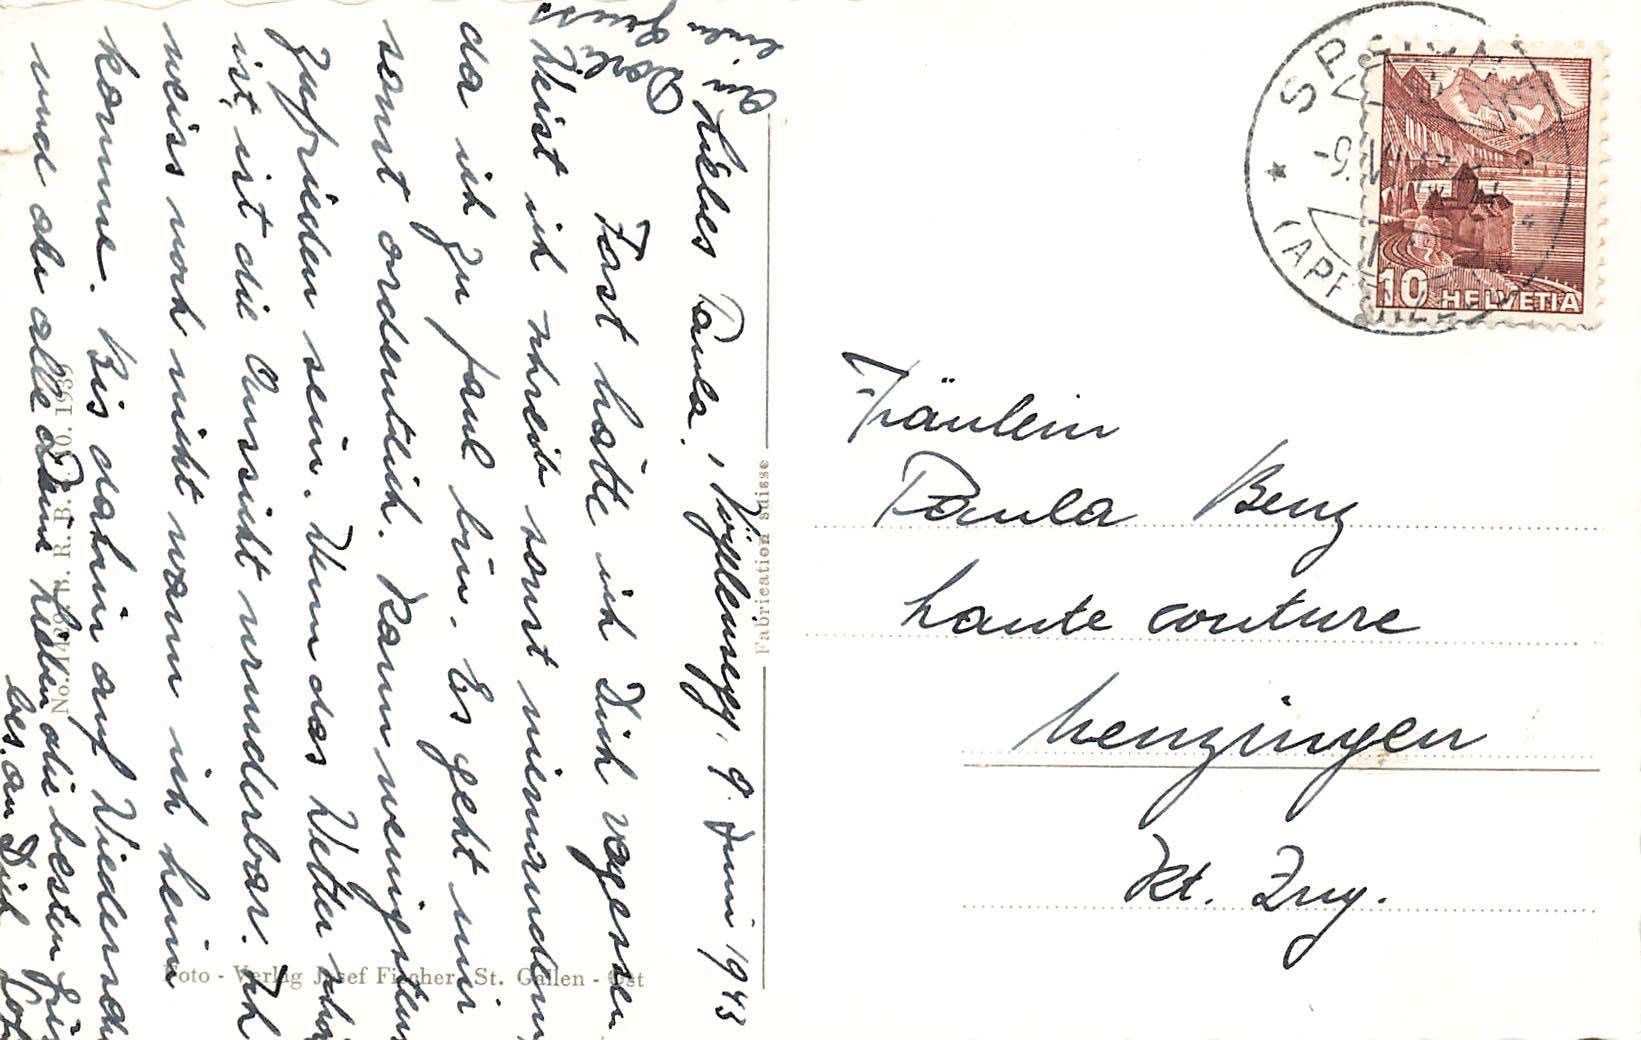 Liebes Paula, Vögelinsegg, 9. Juni 1943
Fast hätte ich Dich vergessen
Weist ich schreib sonst niemandem
da ich zu faul bin. Es geht mir
sonst ordentlich. Kann wenigstens
zufrieden sein. Wenn das Wetter schön
ist, ist die Aussicht wunderbar. Ich
weiss noch nicht wann ich heim
komme. Bis dahin auf Wiedersehen
und an alle Deine Lieben die besten Grüsse
bes. an Dich
An Dorli
einen Gruss
No. 1452 B. R. B. 3. 10. 1939
Foto - Verlag Josef Fischer, St. Gallen - Ost
Fabrication suisse
SPEICHER
(APPENZELL)
10 HELVETIA
Fräulein
Paula Benz
haute couture
Menzingen
Kt. Zug.